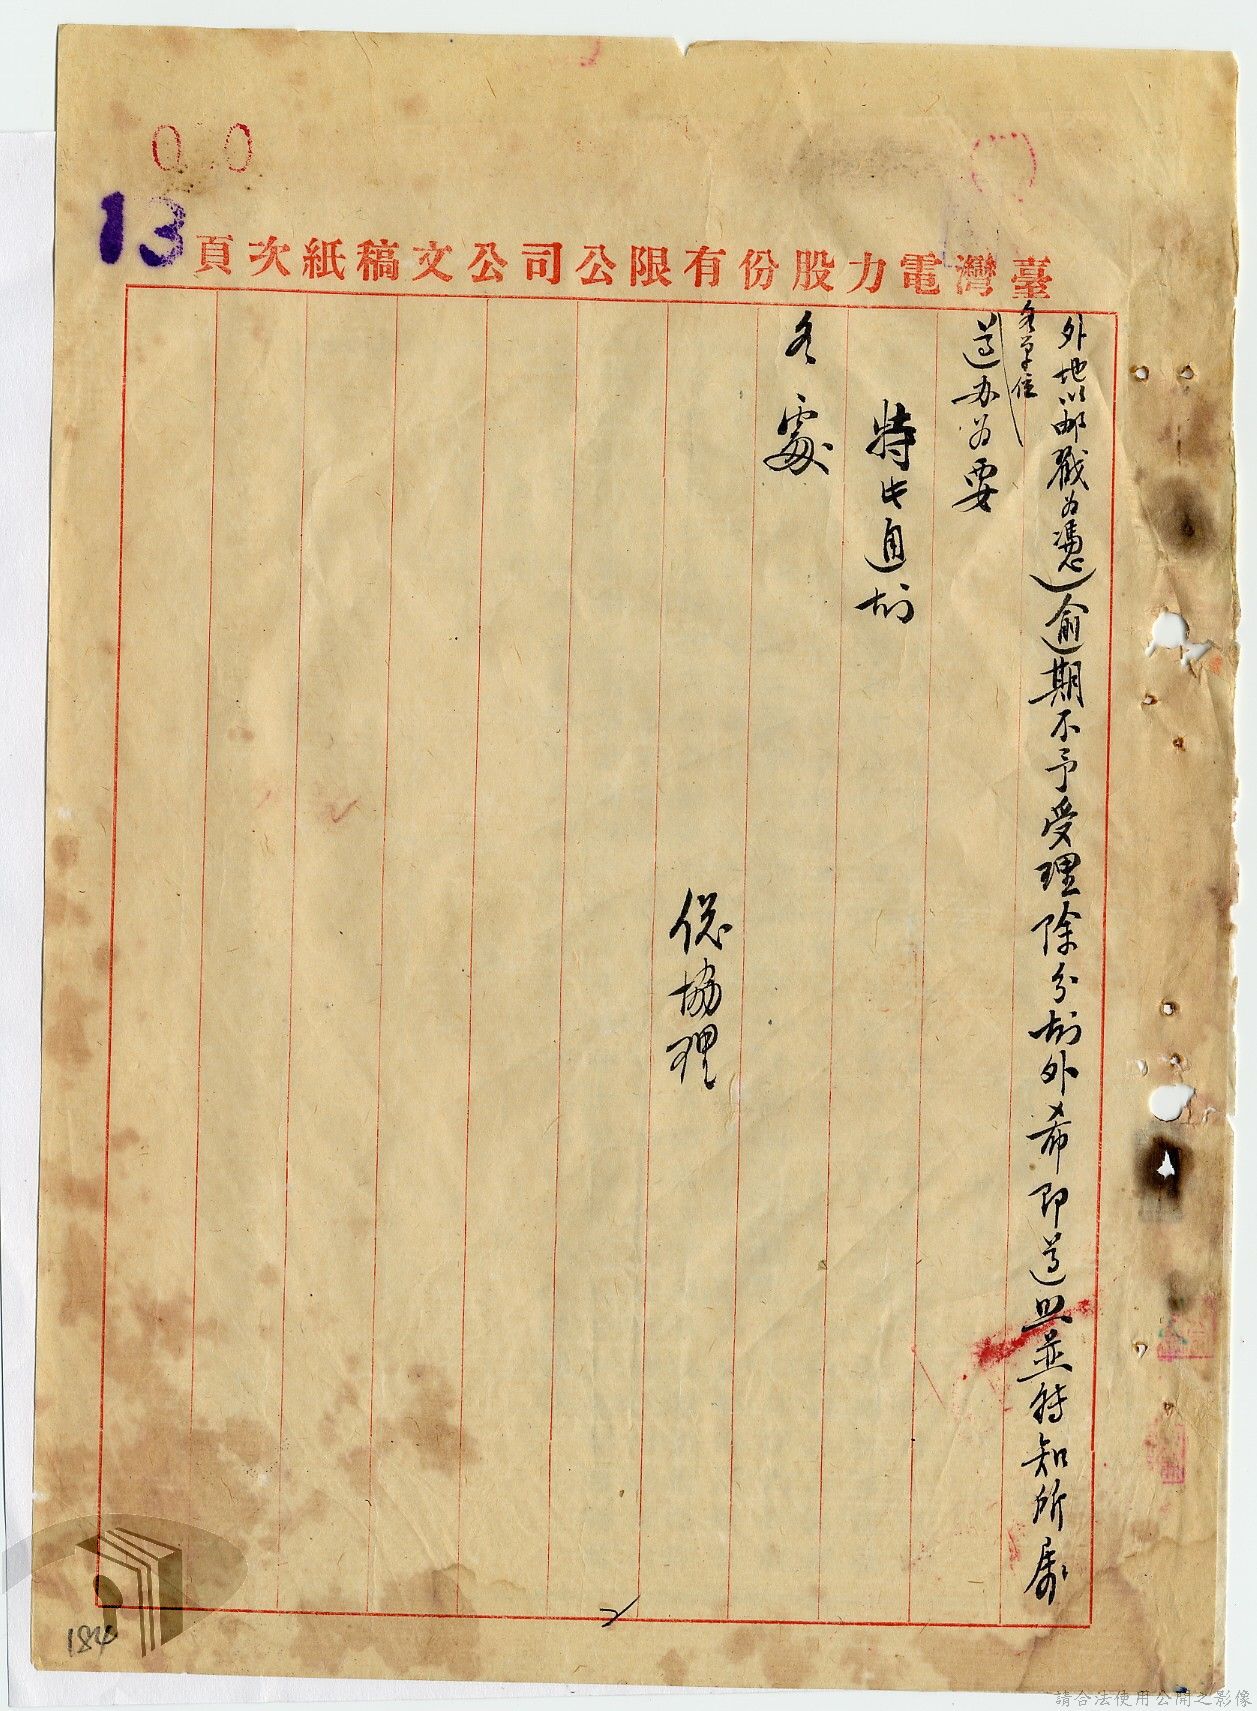 00
13
臺灣電力股份有限公司公文稿紙次頁
外地以郵戳為憑）逾期不予受理除分刻外希即遵照並轉知所屬
各單位
遵办为要
特此通
各處
總協理
184
請合法使用公開之影像